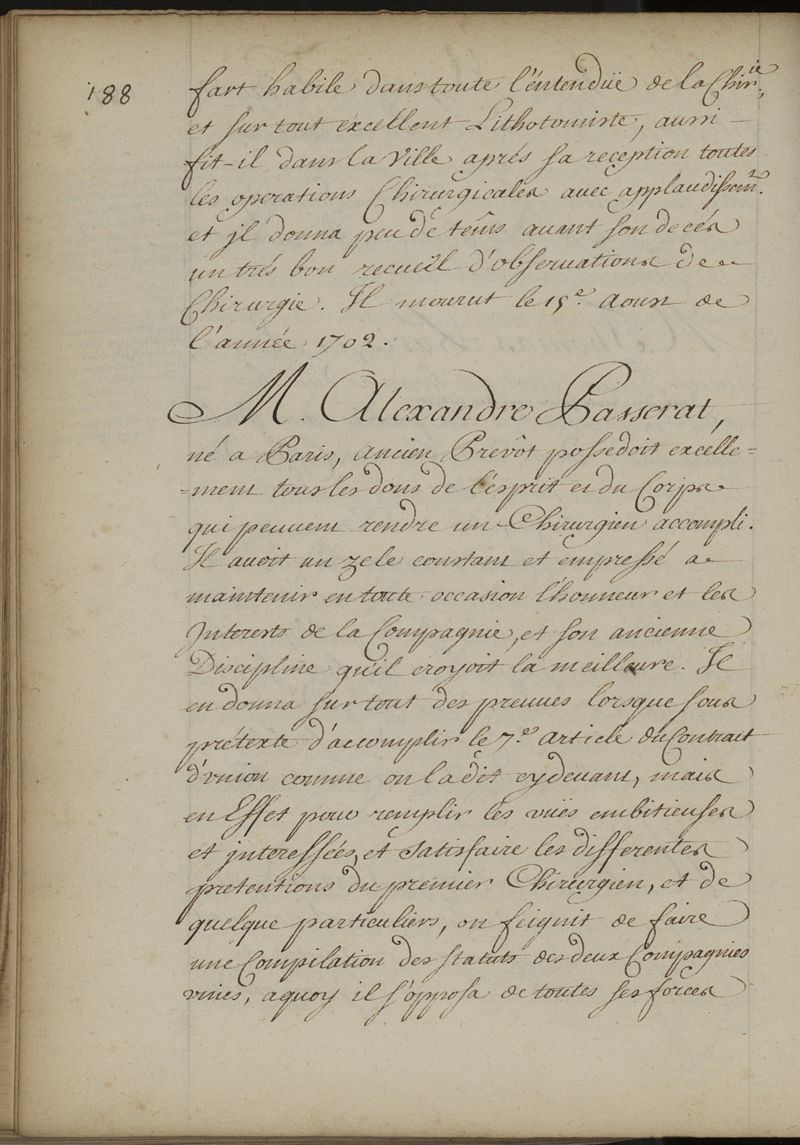 188
fort habile dans toute l'éntenduë de la Chir.ie
et sur tout excellent Lithotomiste, aussi
fit-il dans la Ville aprés sa reception toutes
les operations Chirurgicales avec applaudissem.t
et jl donna peu de têms avant son decés
un trés bon recueil d'observations de
Chirurgie. Il mourut le 15.e Aoust de
l'année 1702.
M. Alexandre Passerat,
né a Paris, ancien Prevôt possedoit excelle=
=ment tous les dons de l'ésprit et du Corps
qui peuvent rendre un Chirurgien accompli.
Il avoit un zele constant et empressé a
maintenir en toute occasion l'honneur et les
Jnterests de la Compagnie, et son ancienne
Discipline qu'il croyoit la meilleure. Il
en donna sur tout des preuves lorsque sous
prétexte d'accomplir le 7.e article du Contract
d'vnion comme on l'a dit cydevant, mais
en Effet pour remplir les vuës ambitieuses
et jnteressées, et satisfaire les differentes
pretentions du premier Chirurgien, et de
quelque particuliers, on feignit de faire
une Compilation des statuts des deux Compagnies
vnies, aquoy il s'opposa de toutes ses forces